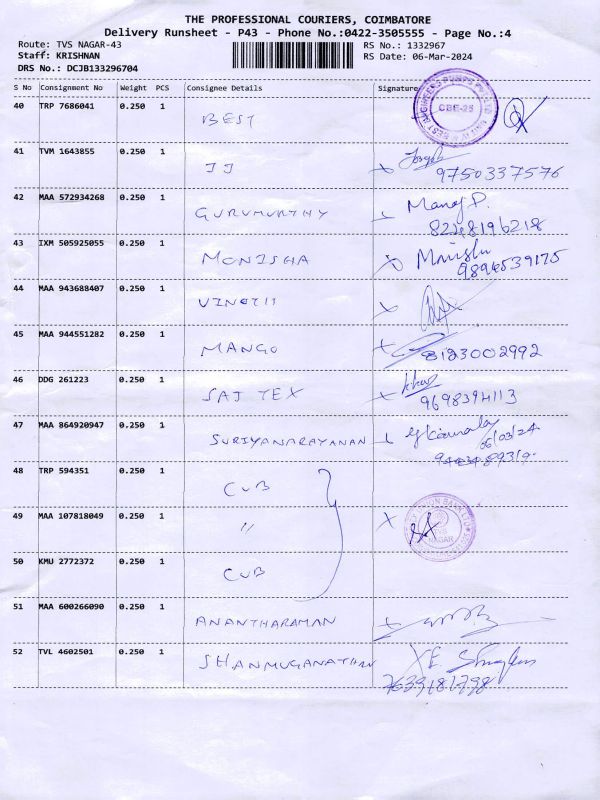 THE PROFESSIONAL COURIERS, COIMBATORE
Delivery Runsheet - P43 - Phone No.:0422-3505555 - Page No.:4
Route: TVS NAGAR-43 RS No.: 1332967
Staff: KRISHNAN RS Date: 06-Mar-2024
DRS No.: DCJB133296704
S No Consignment No Weight PCS Consignee Details Signature
40 TRP 7686041 0.250 1 BEST
CBE-25
41 TVM 1643855 0.250 1 JJ Joseph
9750337576
42 MAA 572934268 0.250 1 GURUMURTHY Manoj P.
8248196218
43 IXM 505925055 0.250 1 MONISHA Monisha
9894539175
44 MAA 943688407 0.250 1 VINETH
45 MAA 944551282 0.250 1 MANGO 8123002992
46 DDG 261223 0.250 1 SAI TEX
9698394113
47 MAA 864920947 0.250 1 SURIYANARAYANAN
06/03/24
48 TRP 594351 0.250 1 CUB
49 MAA 107818049 0.250 1 "
TVS
NAGAR
50 KMU 2772372 0.250 1 CUB
51 MAA 600266090 0.250 1 ANANTHARAMAN
52 TVL 4602501 0.250 1 SHANMUGANATHAN
7639181798